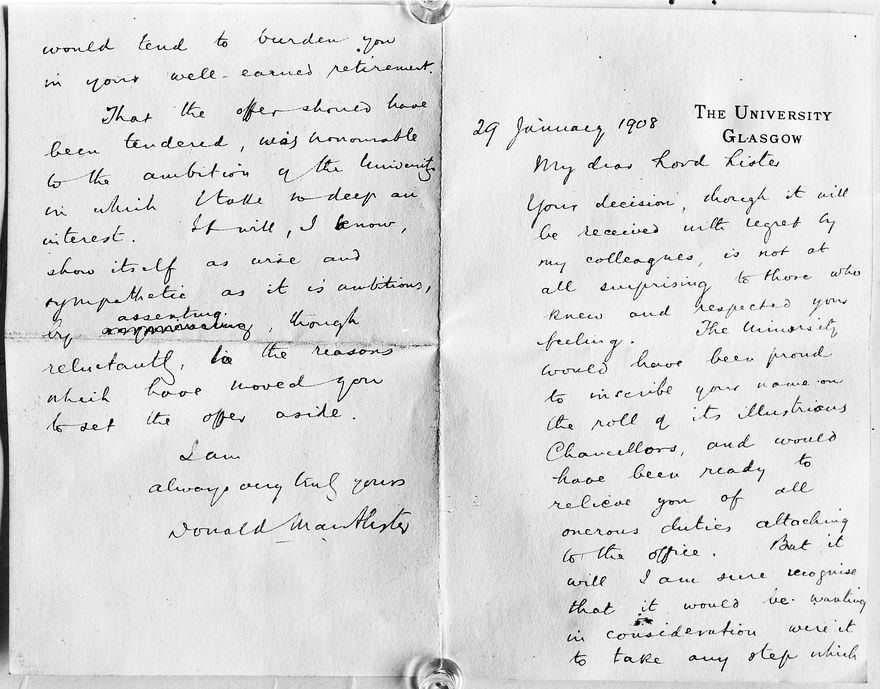 THE UNIVERSITY
GLASGOW
29 January 1908
My dear Lord Lister
Your decision, though it will
be received with regret by
my colleagues, is not at
all surprising to those who
knew and respected your
feeling. The University
would have been proud
to inscribe your name on
the roll of its illustrious
Chancellors, and would
have been ready to
relieve you of all
onerous duties attaching
to the office. But it
will I am sure recognise
that it would be wanting
in consideration were it
to take any step which
would tend to burden you
in your well-earned retirement.
That the offer should have
been tendered, was honourable
to the ambition of the University
in which I take so deep an
interest. It will, I know,
show itself as wise and
sympathetic as it is ambitious,
assenting
by , though
reluctantly, to the reasons
which have moved you
to set the offer aside.
I am
always very truly yours
Donald MacAlister